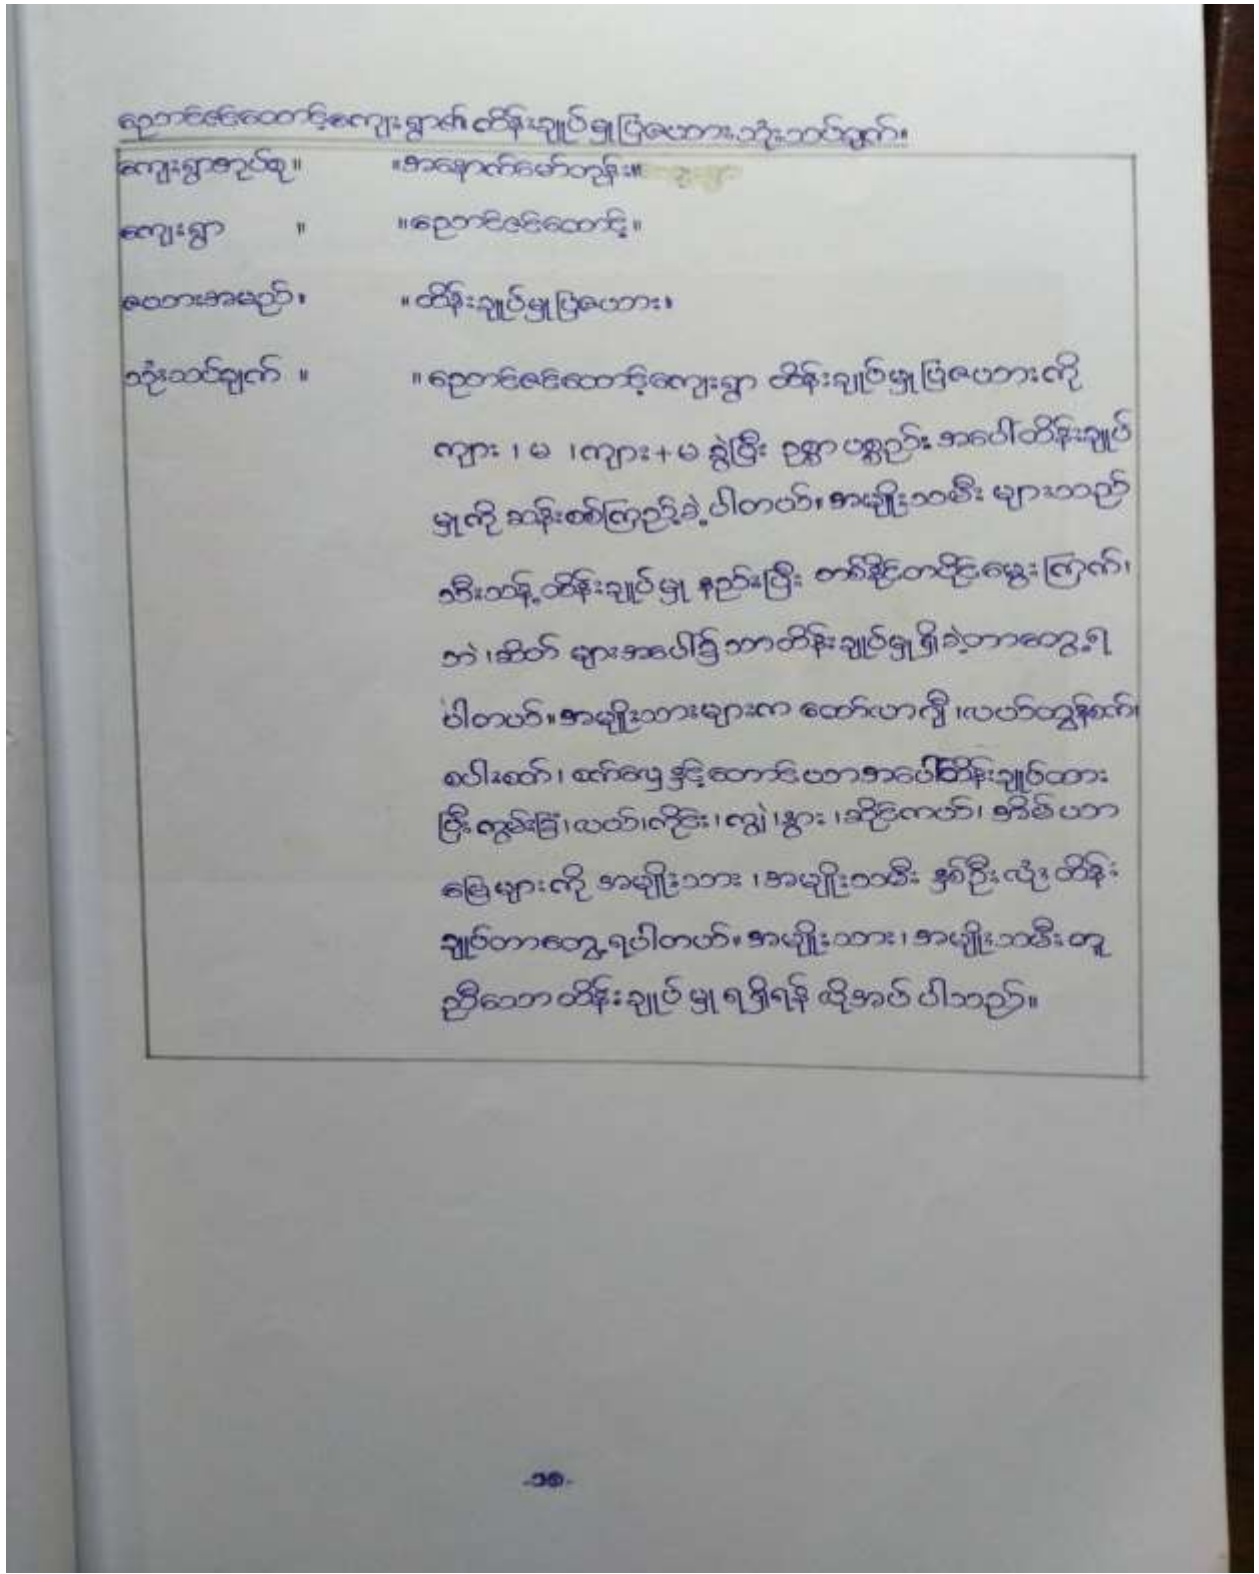 ညောင်ဇင်ထောင့်ကျေးရွာ၏ ထိန်းချုပ်မှုပြဇယား သုံးသပ်ချက်။
ကျေးရွာအုပ်စု။ ။အနောက်မော်တုန်း။
ကျေးရွာ ။ ။ညောင်ဇင်ထောင့်။
ဇယားအမည်။ ။ထိန်းချုပ်မှုပြဇယား။
သုံးသပ်ချက် ။ ။ညောင်ဇင်ထောင့်ကျေးရွာ ထိန်းချုပ်မှုပြဇယားကို
ကျား ၊ မ ၊ကျား+မ ခွဲပြီး ဥစ္စာ ပစ္စည်း အပေါ်ထိန်းချုပ်
မှုကို ဆန်းစစ်ကြည့်ခဲ့ပါတယ်။ အမျိုးသမီး များသည်
သီးသန့် ထိန်းချုပ်မှု နည်းပြီး တစ်နိုင်တပိုင်မွေး ကြက်၊
ဘဲ ၊ဆိတ် များအပေါ်၌သာထိန်းချုပ်မှုရှိခဲ့တာတွေ့ရ
ပါတယ်။ အမျိုးသားများက ထော်လာဂျီ ၊လယ်ထွန်စက်၊
စပါးစက် ၊ စက်လှေ နှင့်တောင်ယာအပေါ်ထိန်းချုပ်ထား
ပြီးကွမ်းခြံ၊လယ်၊ကိုင်း ၊ကျွဲ ၊နွား ၊ဆိုင်ကယ်၊ အိမ်ယာ
မြေများကို အမျိုးသား ၊အမျိုးသမီး နှစ်ဦးလုံး ထိန်း
ချုပ်တာတွေ့ရပါတယ်။ အမျိုးသား၊ အမျိုးသမီး တူ
ညီသော ထိန်းချုပ် မှု ရရှိရန် လိုအပ် ပါသည်။